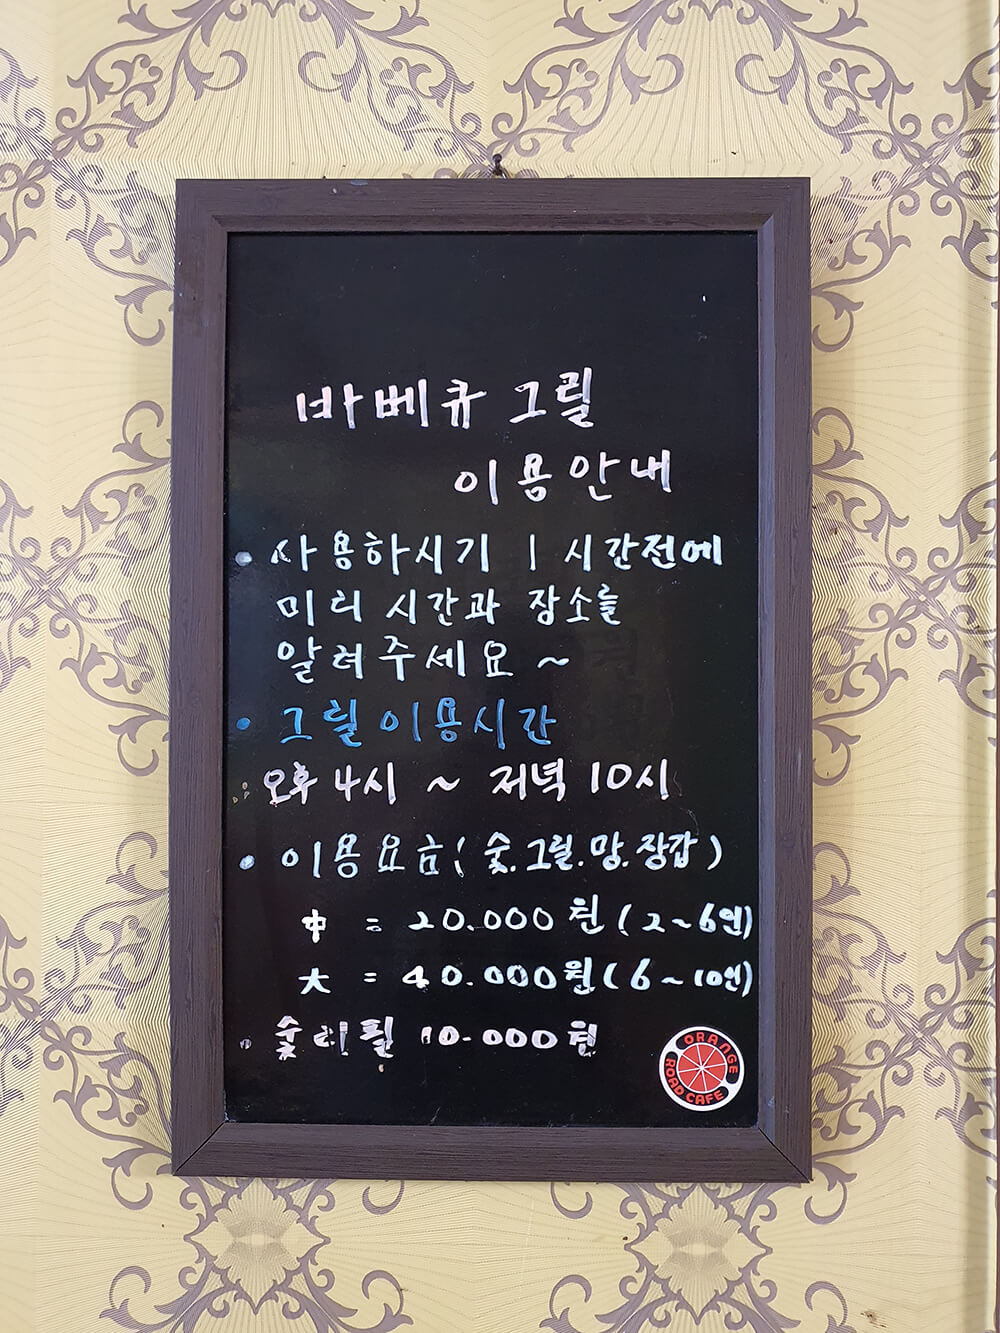 바베큐 그릴
이용안내
• 사용하시기 1시간전에
미리 시간과 장소를
알려주세요~
• 그릴이용시간
오후 4시 ~ 저녁 10시
• 이용요금(숯.그릴.망.장갑)
中 = 20.000원(2~6인)
大 = 40.000원(6~10인)
• 숯리필 10.000원
ORANGE
ROAD CAFE